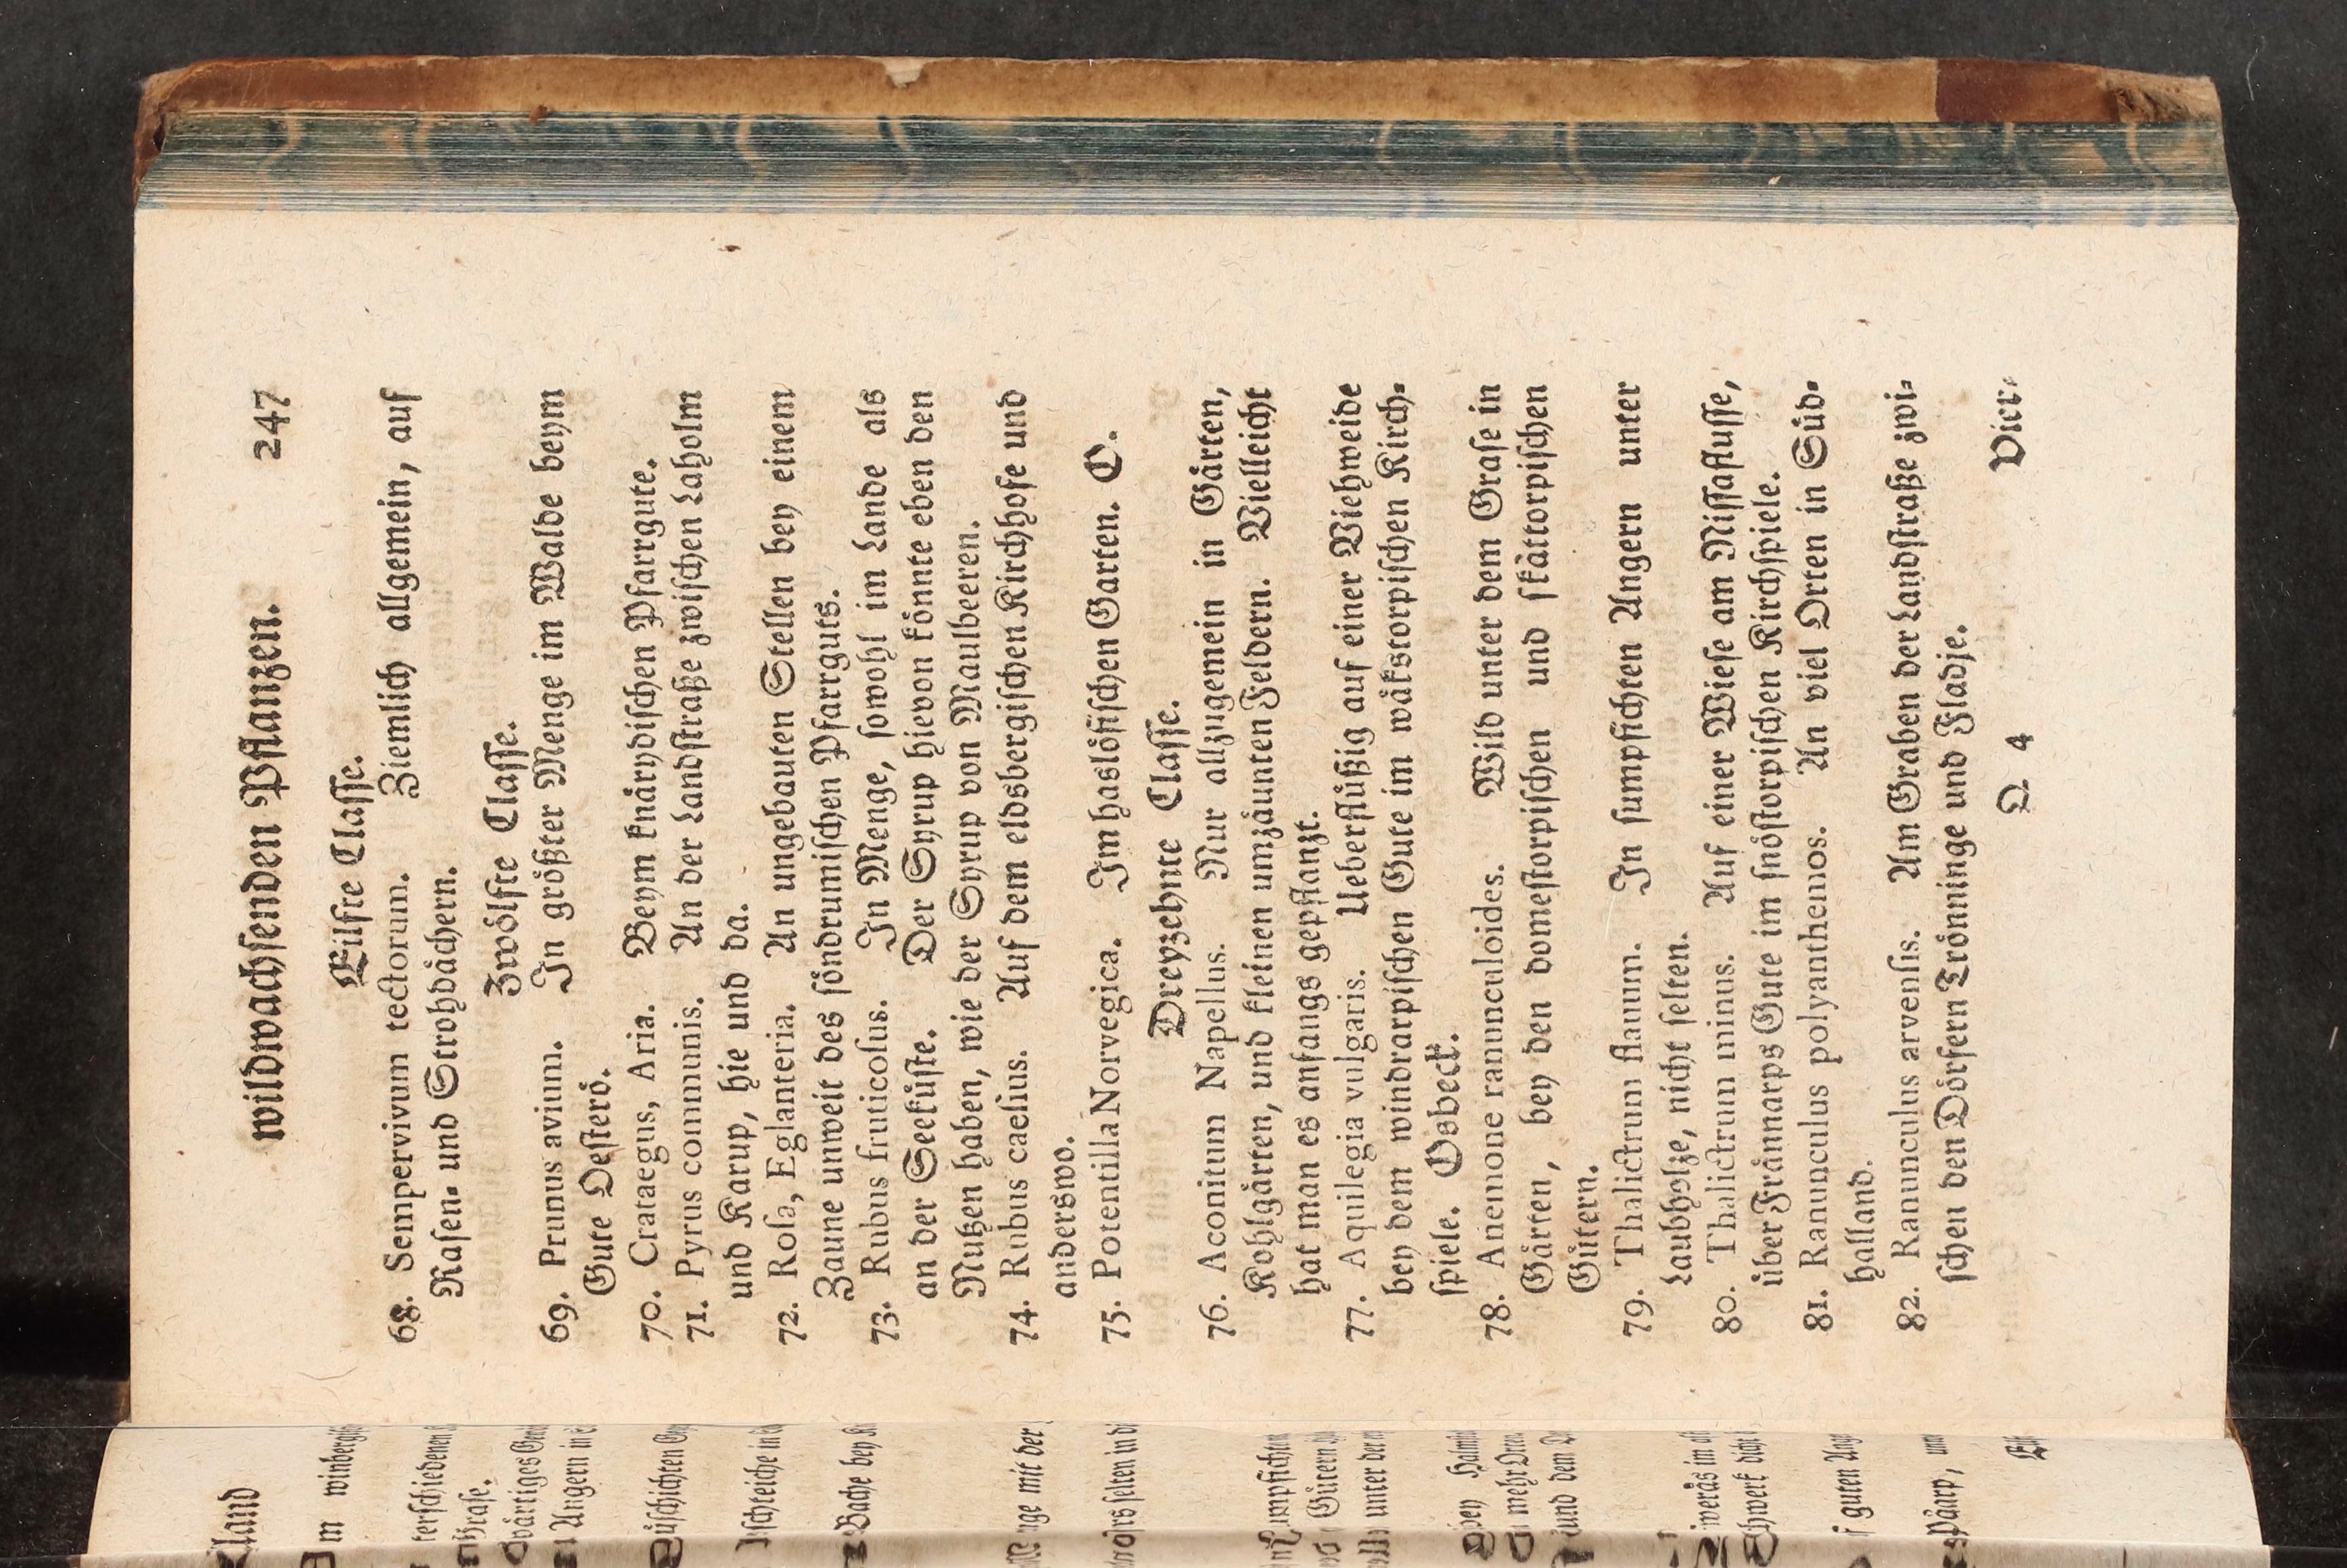 wildwachsenden Pflanzen. 247
Eilfte Classe.
68. Sempervivum tectorum. Ziemlich allgemein, auf
Rasen- und Strohdächern.
Zwölfte Classe.
69. Prunus avium. In größter Menge im Walde beym
Gute Desterö.
70. Crataegus, Aria. Beym knärydischen Pfarrgute.
71. Pyrus communis. An der Landstraße zwischen Laholm
und Karup, hie und da.
72. Rosa, Eglanteria. An ungebauten Stellen bey einem
Zaune unweit des söndrumischen Pfarrguts.
73. Rubus fruticosus. In Menge, sowohl im Lande als
an der Seeküste. Der Syrup hievon könnte eben den
Nutzen haben, wie der Syrup von Maulbeeren.
74. Rubus caesius. Auf dem eldsbergischen Kirchhofe und
anderswo.
75. Potentilla Norvegica. Im haslöfischen Garten. O.
Dreyzehnte Classe.
76. Aconitum Napellus. Nur allzugemein in Gärten,
Kohlgärten, und kleinen umzäunten Feldern. Vielleicht
hat man es anfangs gepflanzt.
77. Aquilegia vulgaris. Ueberflüßig auf einer Viehweide
bey dem windrarpischen Gute im wäkstorpischen Kirch-
spiele. Osbeck.
78. Anemone ranunculoides. Wild unter dem Grase in
Gärten, bey den domestorpischen und skättorpischen
Gütern.
79. Thalictrum flauum. In sumpfichten Angern unter
Laubholze, nicht selten.
80. Thalictrum minus. Auf einer Wiese am Nissaflusse,
über Frännarps Gute im snöstorpischen Kirchspiele.
81. Ranunculus polyanthemos. An viel Orten in Süd-
halland.
82. Ranunculus arvensis. Am Graben der Landstraße zwi-
schen den Dörfern Trönninge und Fladje.
Q 4 Vier-